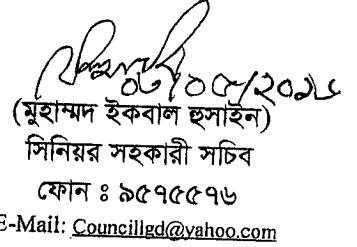 ০৩/০৫/২০১৬
(মুহাম্মদ ইকবাল হুসাইন)
সিনিয়র সহকারী সচিব
ফোন ঃ ৯৫৭৫৫৭৬
E-Mail: Councillgd@yahoo.com